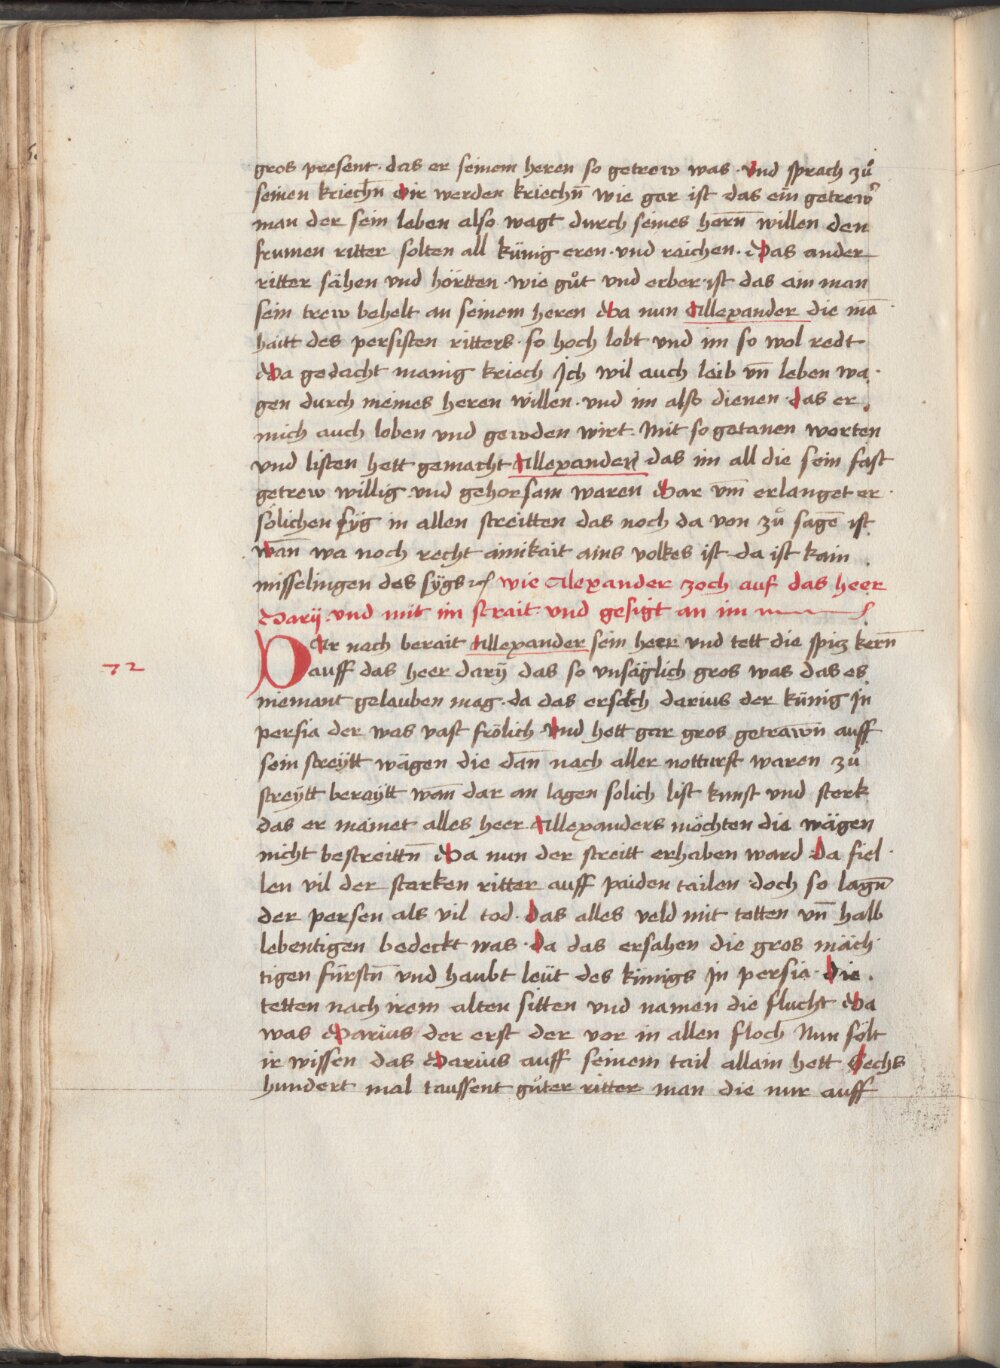 gros present · das er seinem heren so getrew was · Vnd sprach zů
seinen kriechn̄ Dir werden kriechn̄ wie gar ist das ein getrewʾ
man der sein leben also wagt durch seines herñ willen den
frumen ritter solten all künig eren · vnd raichen · Das ander
ritter sähen vnd hörtten · wie gůt vnd erber ist das ain man
sein trew behelt an seinem heren Da nun Allexander die mā
haitt des persisten ritters · so hoch lobt vnd im so wol redt
Da gedacht manig kriech Ich wil auch leib vn̄ leben wa·
gen durch meines heren willen · vnd im also dienen · das er
mich auch loben vnd gewden wirt · Mit so getanen worten
vnd listen hett gemacht Allexander das im all die sein fast
getrew willig vnd gehorsam waren Dar vm̄ erlanget er ·
solichen syg in allen streitten das noch da von zů sagē ist
wan̄ wa noch recht ainikait ains volkes ist da ist kain
misselingen des sygs wie Alexander zoch auf das heer
Darij · vnd mit im strait · vnd gesigt an im
72
DAr nach berait Allexander sein heer vnd tett die spicz kern̄
auff das heer darij das so vnsäglich gros was das es
niemant gelauben mag · da das ersach darius der künig In
persia der was vast frölich · Vnd hett gar gros getrawn̄ auff
sein streÿtt wägen die dan̄ nach aller notturft waren zů
streÿtt bereÿtt wan̄ dar an lagen solich list kunst vnd sterk
das er mainet alles heer Allexanders möchten die wägen
nicht bestreittn̄ Da nun der streitt erhaben ward Da fiel ·
len vil der starken ritter auff paiden tailen · doch so lagn̄
der persen als vil tod · das alles veld mit totten vn̄ halb
lebentigen bedeckt was · da das ersahen die gros mäch·
tigen fürstn̄ vnd haubt leüt des künigs In persia · die
tetten nach irem alten sitten vnd namen die flucht Da
was Darius der erst der vor in allen floch Nun sölt
ir wissen das Darius auff seinem tail allain hett Sechs
hundert mal taussent gůter ritter man die nur auff